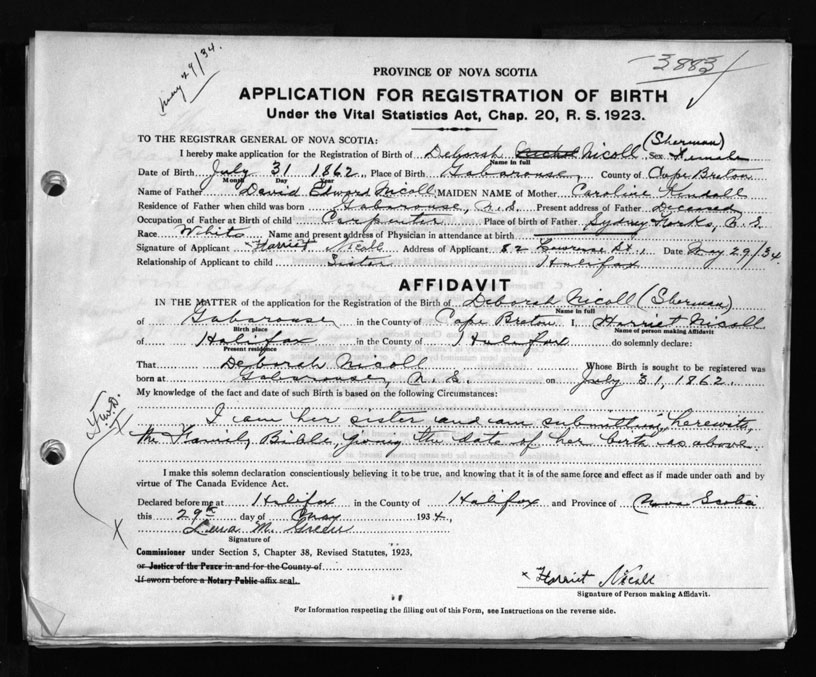 May 29/34.
3883
PROVINCE OF NOVA SCOTIA
APPLICATION FOR REGISTRATION OF BIRTH
Under the Vital Statistics Act, Chap. 20, R. S. 1923.
TO THE REGISTRAR GENERAL OF NOVA SCOTIA:
(Sherman)
I hereby make application for the Registration of Birth of Deborah Nicoll Sex Female
Name in full
Date of Birth July 31 1862, Place of Birth Gabarouse, County of Cape Breton
Month Day Year
Name of Father David Edward Nicoll MAIDEN NAME of Mother Caroline Kendall
Residence of Father when child was born Gabarouse, N.S. Present address of Father Deceased
Occupation of Father at Birth of child Carpenter Place of birth of Father Sydney Forks, N.S.
Race White Name and present address of Physician in attendance at birth
Signature of Applicant x Harriet Nicoll Address of Applicant 82 St., Date May 29/34.
Relationship of Applicant to child Sister Halifax
AFFIDAVIT
IN THE MATTER of the application for the Registration of the Birth of Deborah Nicoll (Sherman)
Name in full
of Gabarouse in the County of Cape Breton I, Harriet Nicoll
Birth place Name of person making Affidavit
of Halifax in the County of Halifax do solemnly declare:
Present residence
That Deborah Nicoll Whose Birth is sought to be registered was
born at Gabarouse, N.S. on July 31, 1862.
My knowledge of the fact and date of such Birth is based on the following Circumstances:
I am her sister and am submitting herewith,
the Family Bible, giving the date of her birth as above.
I make this solemn declaration conscientiously believing it to be true, and knowing that it is of the same force and effect as if made under oath and by
virtue of The Canada Evidence Act.
Declared before me at Halifax in the County of Halifax and Province of Nova Scotia
this 29th day of May 1934,
Lena M. Green
Signature of
Commissioner under Section 5, Chapter 38, Revised Statutes, 1923,
or Justice of the Peace in and for the County of
If sworn before a Notary Public affix seal.
x Harriet Nicoll
Signature of Person making Affidavit.
For Information respecting the filling out of this Form, see Instructions on the reverse side.